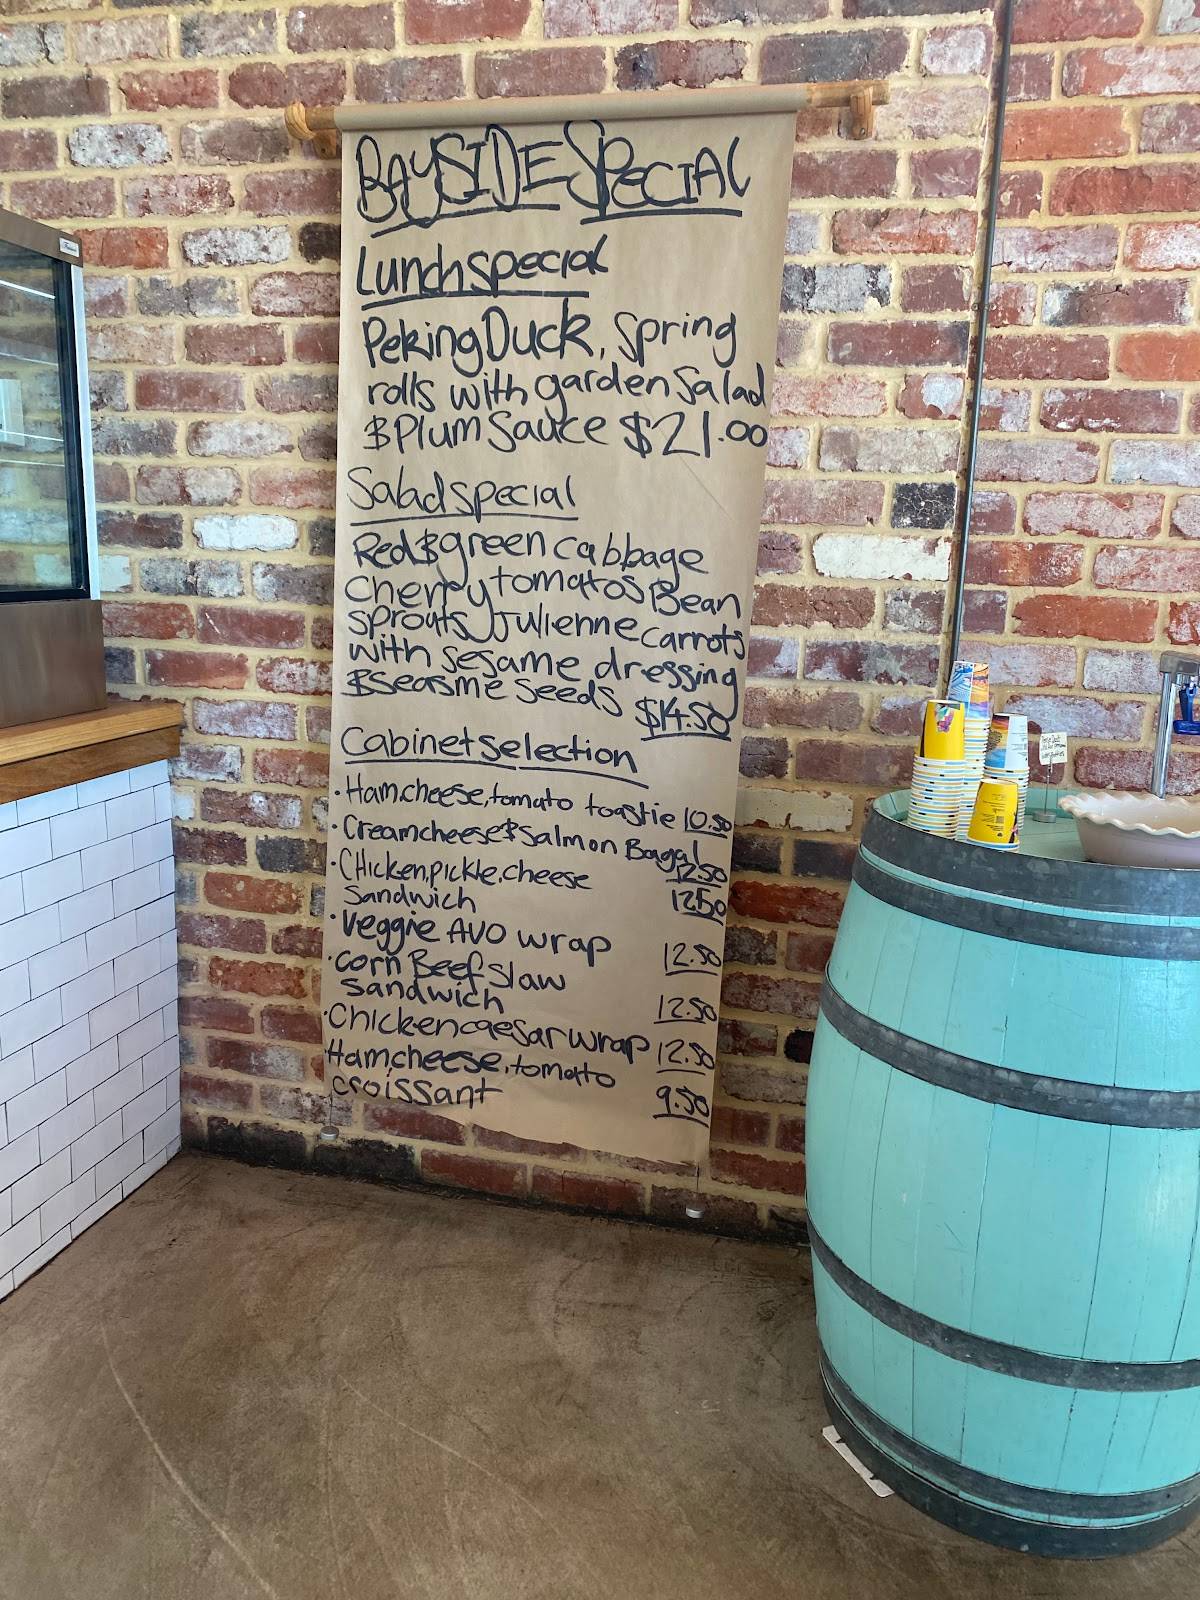 BAYSIDE SPECIAL
Lunch special
Peking Duck, Spring
rolls with garden Salad
& Plum Sauce $21.00
Salad special
Red & green cabbage
Cherry tomatos Bean
sprouts, Julienne carrots
with sesame dressing
& seasme seeds $14.50
Cabinet selection
• Ham, cheese, tomato toastie 10.50
• Cream cheese & Salmon Bagal
12.50
• CHicken, pickle, cheese
Sandwich 12.50
• Veggie AVO wrap 12.50
• corn Beef slaw
Sandwich 12.50
• Chicken caesar wrap 12.50
• Ham, cheese, tomato
croissant 9.50